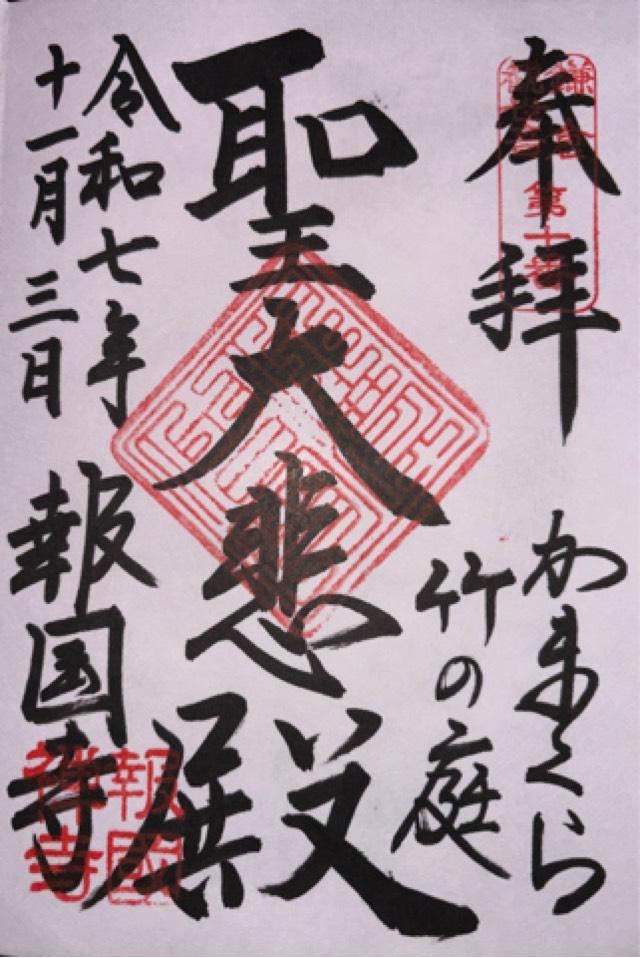 奉拝
かまくら
竹の庭
聖大悲殿
令和七年
十一月三日
報国寺
第十番
報國
禅寺